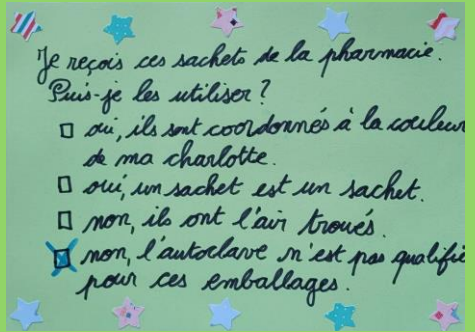 Je reçois ces sachets de la pharmacie.
Puis-je les utiliser ?
□ oui, ils sont coordonnés à la couleur
de ma charlotte.
□ oui, un sachet est un sachet.
□ non, ils ont l'air troués.
☒ non, l'autoclave n'est pas qualifié
pour ces emballages.